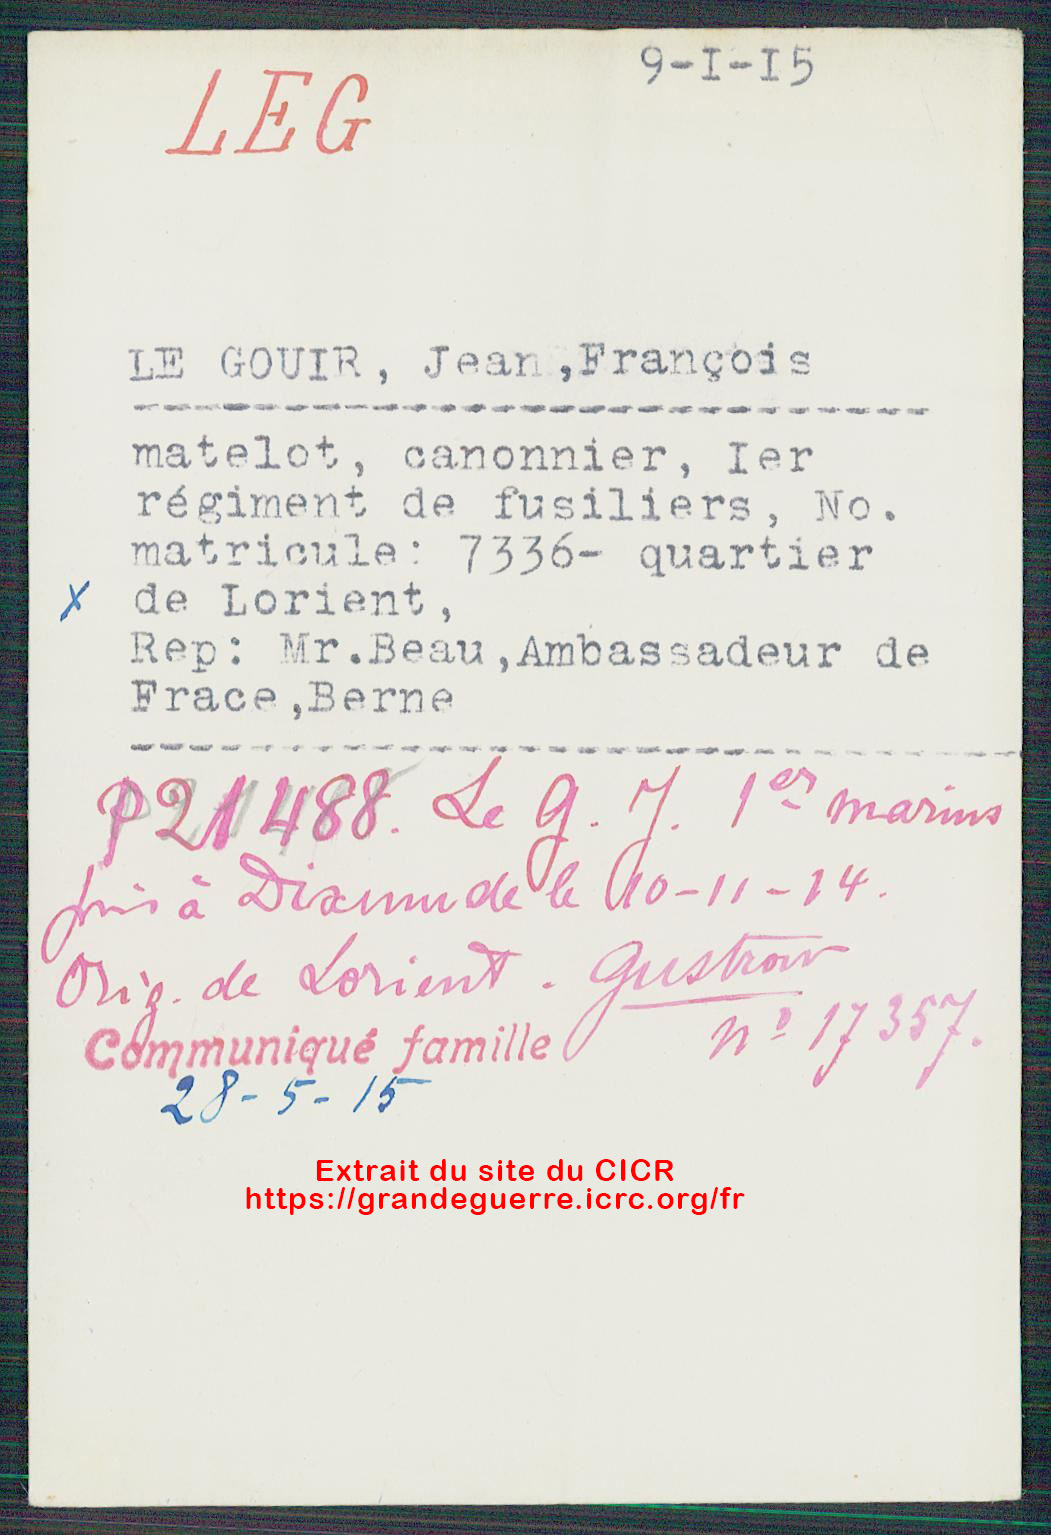 9-I-I5
LEG
LE GOUIR, Jean ,François
matelot, canonnier, Ier
régiment de fusiliers, No.
matricule: 7336- quartier
x de Lorient,
Rep: Mr.Beau,Ambassadeur de
Frace,Berne
P 21488. Le G. J. 1er marins
pris à Dixmude le 10-11-14.
Orig. de Lorient. Gustrow
n° 17357.
Communiqué famille
28-5-15
Extrait du site du CICR
https://grandeguerre.icrc.org/fr